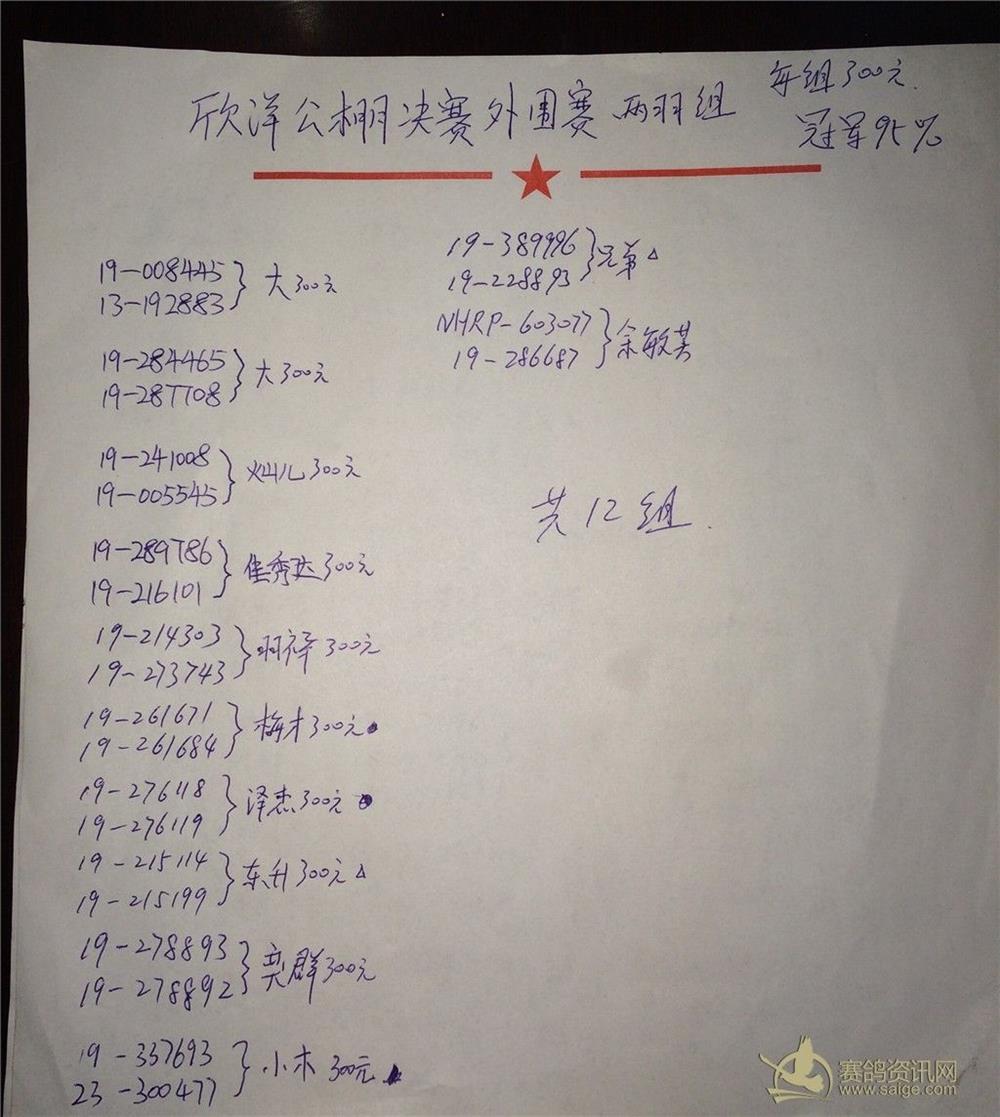 欣洋公棚决赛外围赛 两羽组
每组300元.
冠军95%
19-008445
13-192883
大300元
19-284465
19-287708
大300元
19-241008
19-005545
灿儿300元
19-289786
19-216101
佳秀达300元
19-214303
19-273743
羽祥300元
19-261671
19-261684
梅才300元
19-276118
19-276119
泽杰300元
19-215114
19-215199
东升300元△
19-278893
19-278892
奕群300元
19-337693
23-300477
小木300元
19-389996
19-228893
兄弟△
NHRP-603077
19-286687
余敏芸
共12组.
赛鸽资讯网
www.saige.com